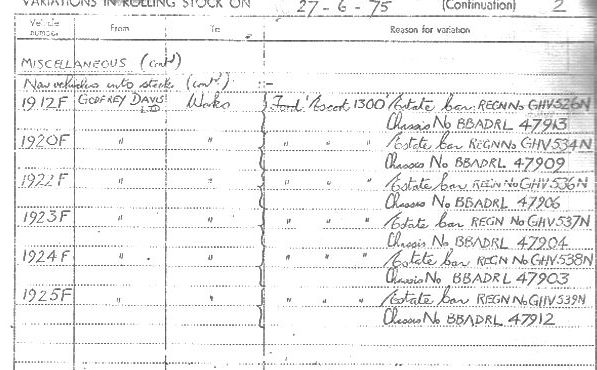 VARIATIONS IN ROLLING STOCK ON 27-6-75 (Continuation) 2
Vehicle number From To Reason for variation
MISCELLANEOUS (cont'd)
New vehicles into stock (cont'd) :-
1912F GODFREY DAVIS LTD Works Ford 'Escort 1300' Estate car REGN No GHV526N
Chassis No BBADRL 47913
1920F " " " " " Estate car REGN No GHV534N
Chassis No BBADRL 47909
1922F " " " " " Estate car REGN No GHV536N
Chassis No BBADRL 47906
1923F " " " " " Estate car REGN No GHV537N
Chassis No BBADRL 47904
1924F " " " " " Estate car REGN No GHV538N
Chassis No BBADRL 47903
1925F " " " " " Estate car REGN No GHV539N
Chassis No BBADRL 47912